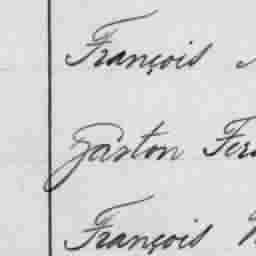 François
Gaston
François